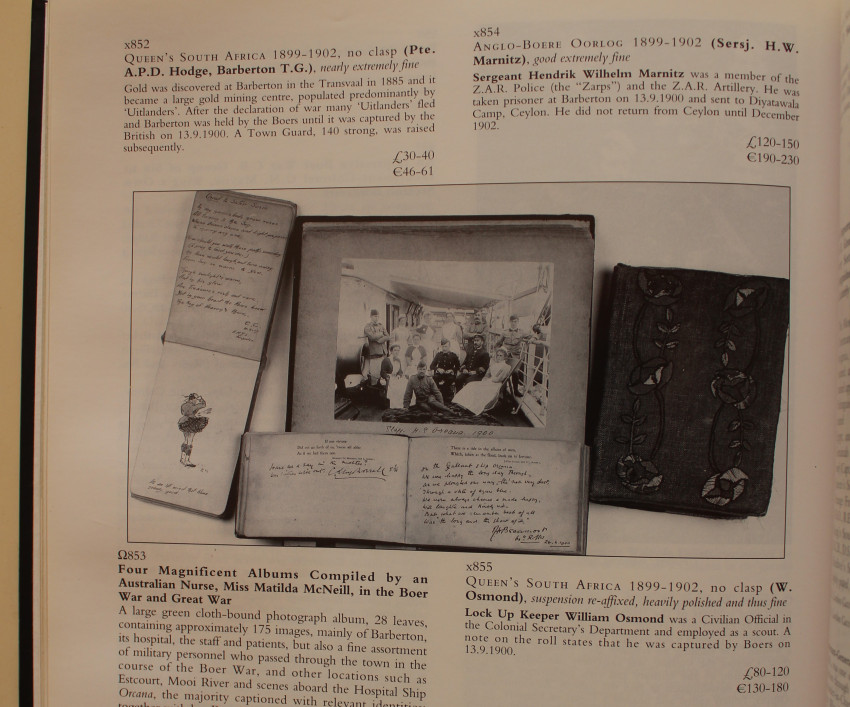 x852
QUEEN'S SOUTH AFRICA 1899-1902, no clasp (Pte.
A.P.D. Hodge, Barberton T.G.), nearly extremely fine
Gold was discovered at Barberton in the Transvaal in 1885 and it
became a large gold mining centre, populated predominantly by
'Uitlanders'. After the declaration of war many 'Uitlanders' fled
and Barberton was held by the Boers until it was captured by the
British on 13.9.1900. A Town Guard, 140 strong, was raised
subsequently.
£30-40
€46-61
x854
ANGLO-BOERE OORLOG 1899-1902 (Sersj. H.W.
Marnitz), good extremely fine
Sergeant Hendrik Wilhelm Marnitz was a member of the
Z.A.R. Police (the "Zarps") and the Z.A.R. Artillery. He was
taken prisoner at Barberton on 13.9.1900 and sent to Diyatawala
Camp, Ceylon. He did not return from Ceylon until December
1902.
£120-150
€190-230
Staff. H.S. Orcana. 1900
on the Gallant ship Orcana
Ω853
Four Magnificent Albums Compiled by an
Australian Nurse, Miss Matilda McNeill, in the Boer
War and Great War
A large green cloth-bound photograph album, 28 leaves,
containing approximately 175 images, mainly of Barberton,
its hospital, the staff and patients, but also a fine assortment
of military personnel who passed through the town in the
course of the Boer War, and other locations such as
Estcourt, Mooi River and scenes aboard the Hospital Ship
Orcana, the majority captioned with relevant
x855
QUEEN'S SOUTH AFRICA 1899-1902, no clasp (W.
Osmond), suspension re-affixed, heavily polished and thus fine
Lock Up Keeper William Osmond was a Civilian Official in
the Colonial Secretary's Department and employed as a scout. A
note on the roll states that he was captured by Boers on
13.9.1900.
£80-120
€130-180